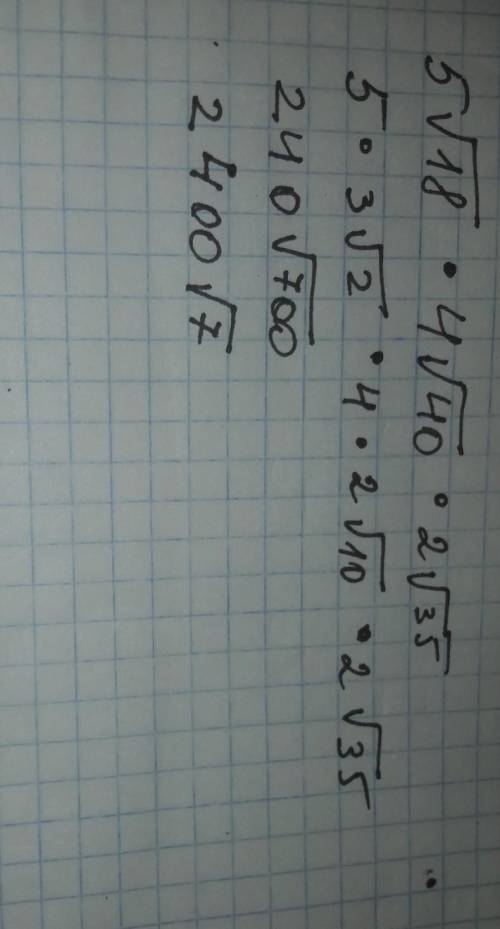 5√18 · 4√40 · 2√35
5 · 3√2 · 4 · 2√10 · 2√35
240√700
2400√7